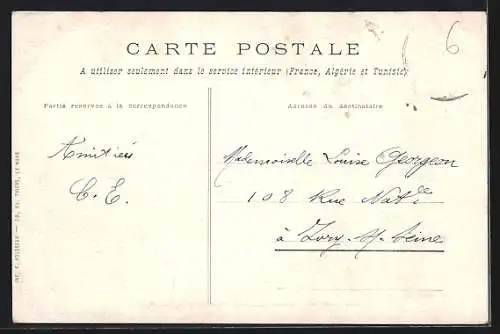 6
CARTE POSTALE
A utiliser seulement dans le service intérieur (France, Algérie et Tunisie)
Partie réservée à la correspondance
Adresse du destinataire
Amitiés
C. E.
Mademoiselle Louise Georgeon
108 Rue Nat.le
à Ivry-s/-Seine